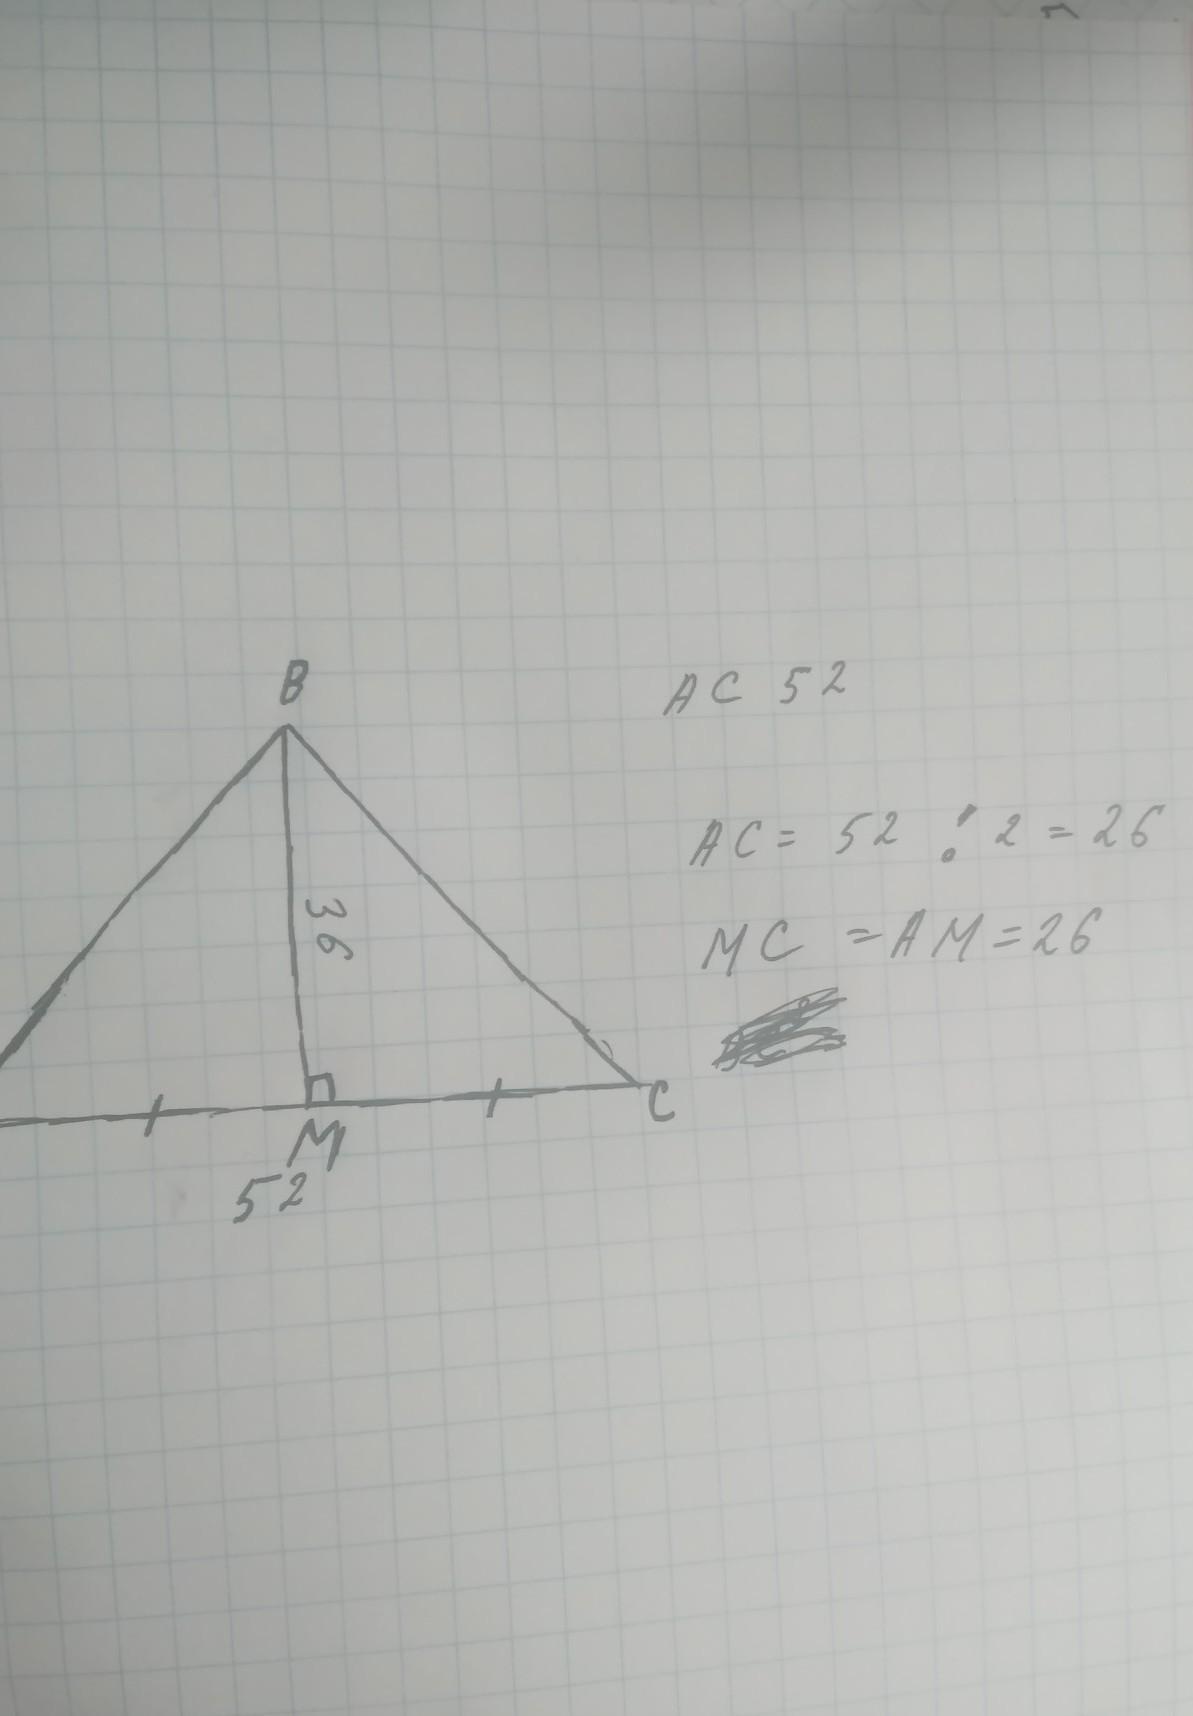 B
AC 52
AC = 52 : 2 = 26
36
MC = AM = 26
C
M
52